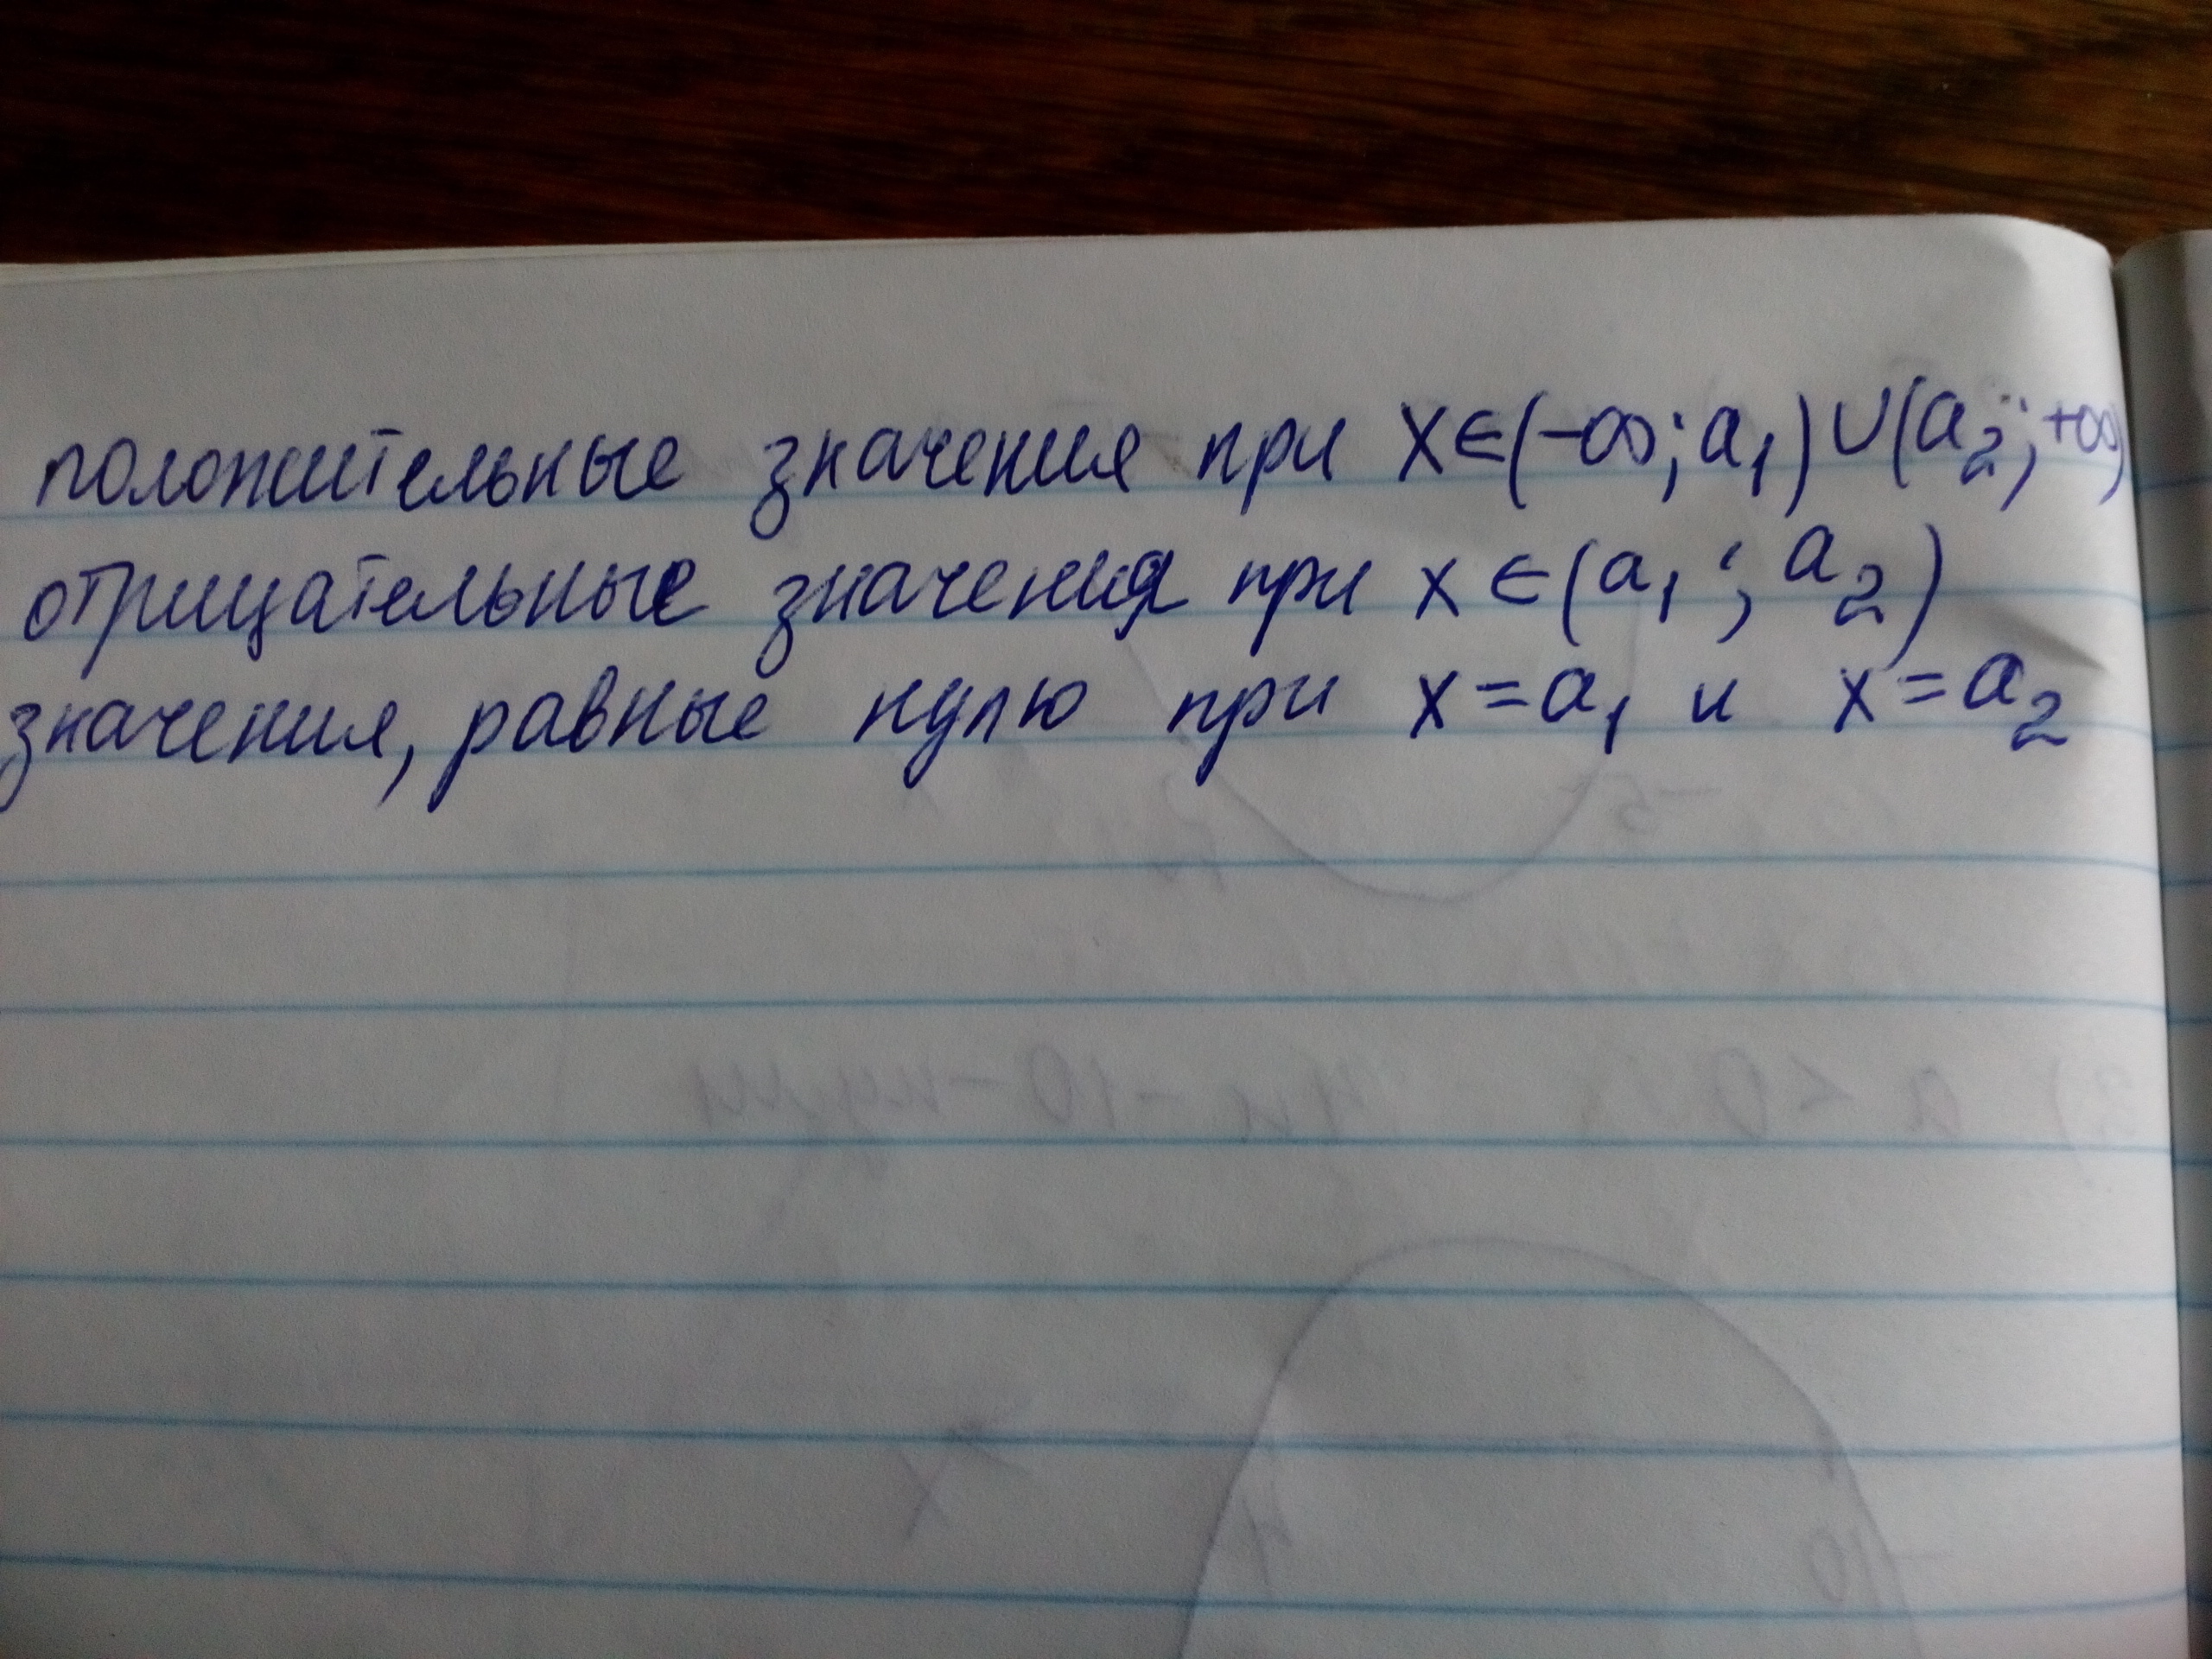 положительные значения при x∈(-∞; a₁)∪(a₂; +∞)
отрицательные значения при x∈(a₁; a₂)
значения, равные нулю при x=a₁ и x=a₂
-5
2) a<0 4 и -10 - нули
x
4
-10